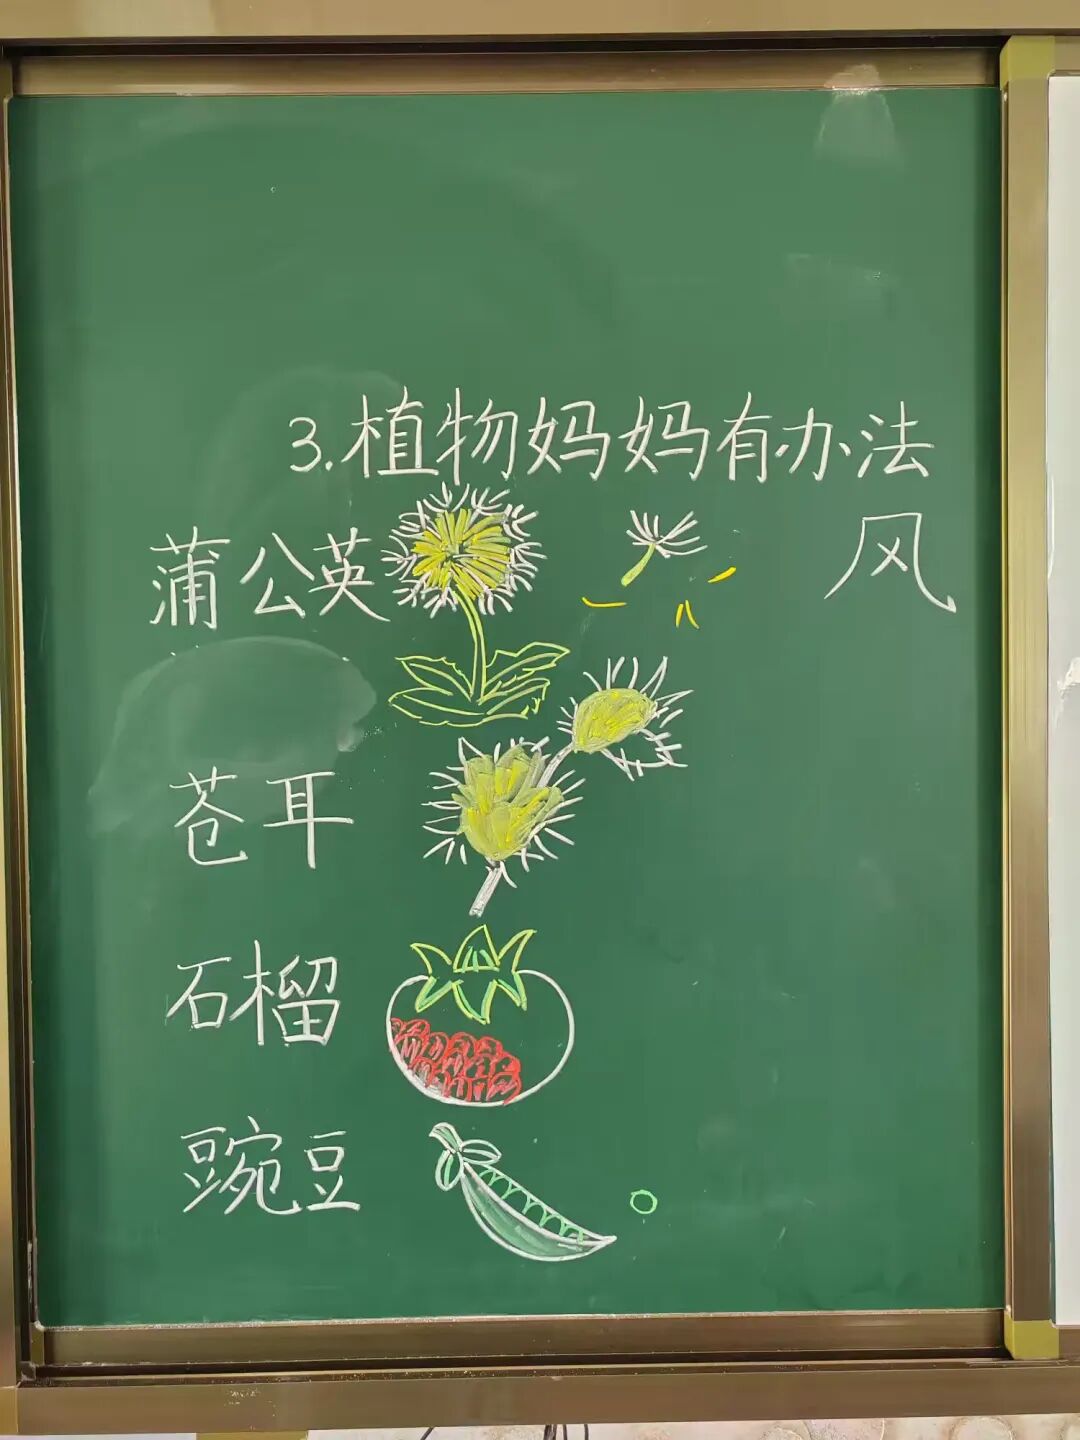 3.植物妈妈有办法
蒲公英 风
苍耳
石榴
豌豆